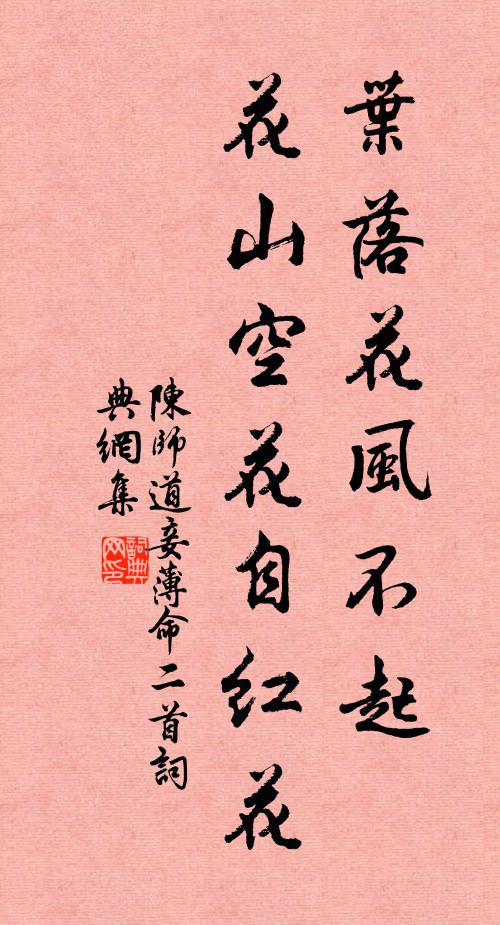 葉落花風不起
花山空花自红花
陳師道妾薄命二首詞
典網集
詞典網印